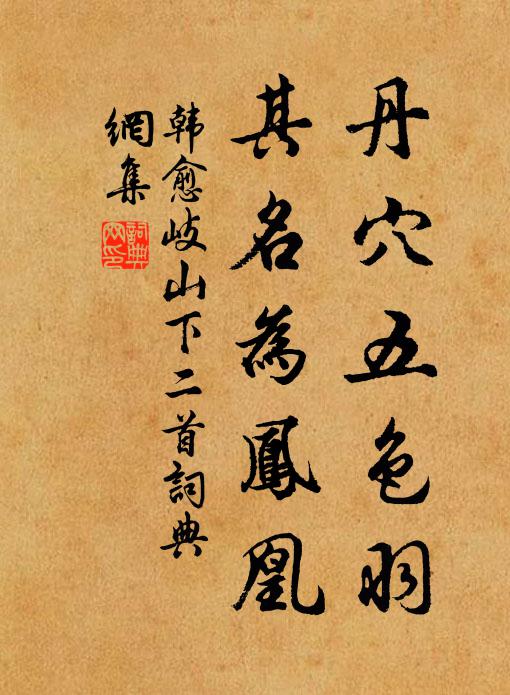 丹穴五色羽
其名為鳳凰
韓愈岐山下二首詞典
網集
詞典網印